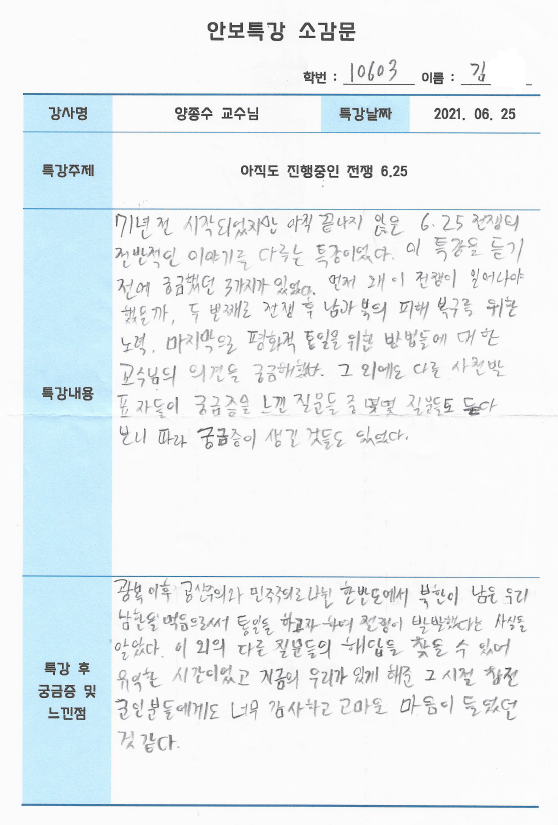 안보특강 소감문
학번 : 10603 이름 : 김
강사명 양종수 교수님 특강날짜 2021. 06. 25
특강주제 아직도 진행중인 전쟁 6.25
특강내용
71년 전 시작되었지만 아직 끝나지 않은 6.25 전쟁의
전반적인 이야기를 다루는 특강이었다. 이 특강을 듣기
전에 궁금했던 3가지가 있었다. 먼저 왜 이 전쟁이 일어나야
했을까, 두 번째로 전쟁 후 남과 북의 피해 복구를 위한
노력, 마지막으로 평화적 통일을 위한 방법들에 대한
교수님의 의견을 궁금해했다. 그 외에도 다른 사전발
표자들이 궁금증을 느낀 질문들 중 몇몇 질문들도 듣다
보니 따라 궁금증이 생긴 것들도 있었다.
특강 후
궁금증 및
느낀점
광복 이후 공산주의와 민주주의로 나뉜 한반도에서 북한이 남은 우리
남한을 먹음으로써 통일을 하고자 하여 전쟁이 발발했다는 사실을
알았다. 이 외의 다른 질문들의 해답을 찾을 수 있어
유익한 시간이었고 지금의 우리가 있게 해준 그 시절 참전
군인분들에게도 너무 감사하고 고마운 마음이 들었던
것 같다.